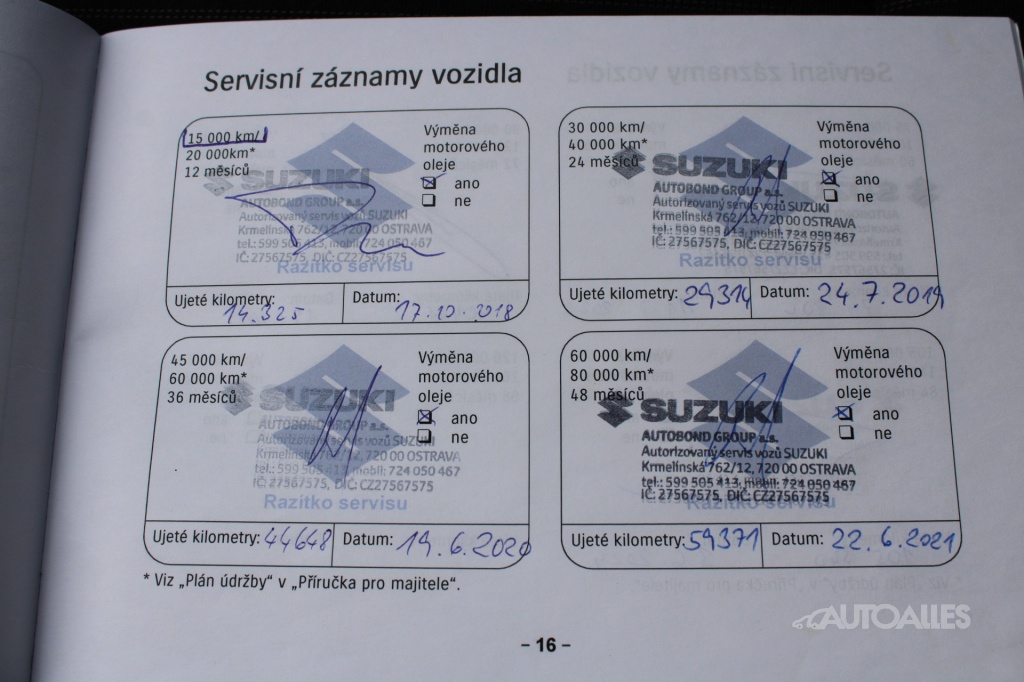 Servisní záznamy vozidla
15 000 km/
20 000km*
12 měsíců
Výměna
motorového
oleje
ano
ne
SUZUKI
AUTOBOND GROUP a.s.
Autorizovaný servis vozů SUZUKI
Krmelínská 762/12, 720 00 OSTRAVA
tel.: 599 505 413, mobil: 724 050 467
IČ: 27567575, DIČ: CZ27567575
Razítko servisu
Ujeté kilometry: 14.325
Datum: 17.10.2018
30 000 km/
40 000 km*
24 měsíců
Výměna
motorového
oleje
ano
ne
SUZUKI
AUTOBOND GROUP a.s.
Autorizovaný servis vozů SUZUKI
Krmelínská 762/12, 720 00 OSTRAVA
tel.: 599 505 413, mobil: 724 050 467
IČ: 27567575, DIČ: CZ27567575
Razítko servisu
Ujeté kilometry: 29314
Datum: 24.7.2019
45 000 km/
60 000 km*
36 měsíců
Výměna
motorového
oleje
ano
ne
SUZUKI
AUTOBOND GROUP a.s.
Autorizovaný servis vozů SUZUKI
Krmelínská 762/12, 720 00 OSTRAVA
tel.: 599 505 413, mobil: 724 050 467
IČ: 27567575, DIČ: CZ27567575
Razítko servisu
Ujeté kilometry: 44648
Datum: 19.6.2020
60 000 km/
80 000 km*
48 měsíců
Výměna
motorového
oleje
ano
ne
SUZUKI
AUTOBOND GROUP a.s.
Autorizovaný servis vozů SUZUKI
Krmelínská 762/12, 720 00 OSTRAVA
tel.: 599 505 413, mobil: 724 050 467
IČ: 27567575, DIČ: CZ27567575
Razítko servisu
Ujeté kilometry: 59371
Datum: 22.6.2021
* Viz „Plán údržby“ v „Příručka pro majitele“.
– 16 –
AUTOALLES